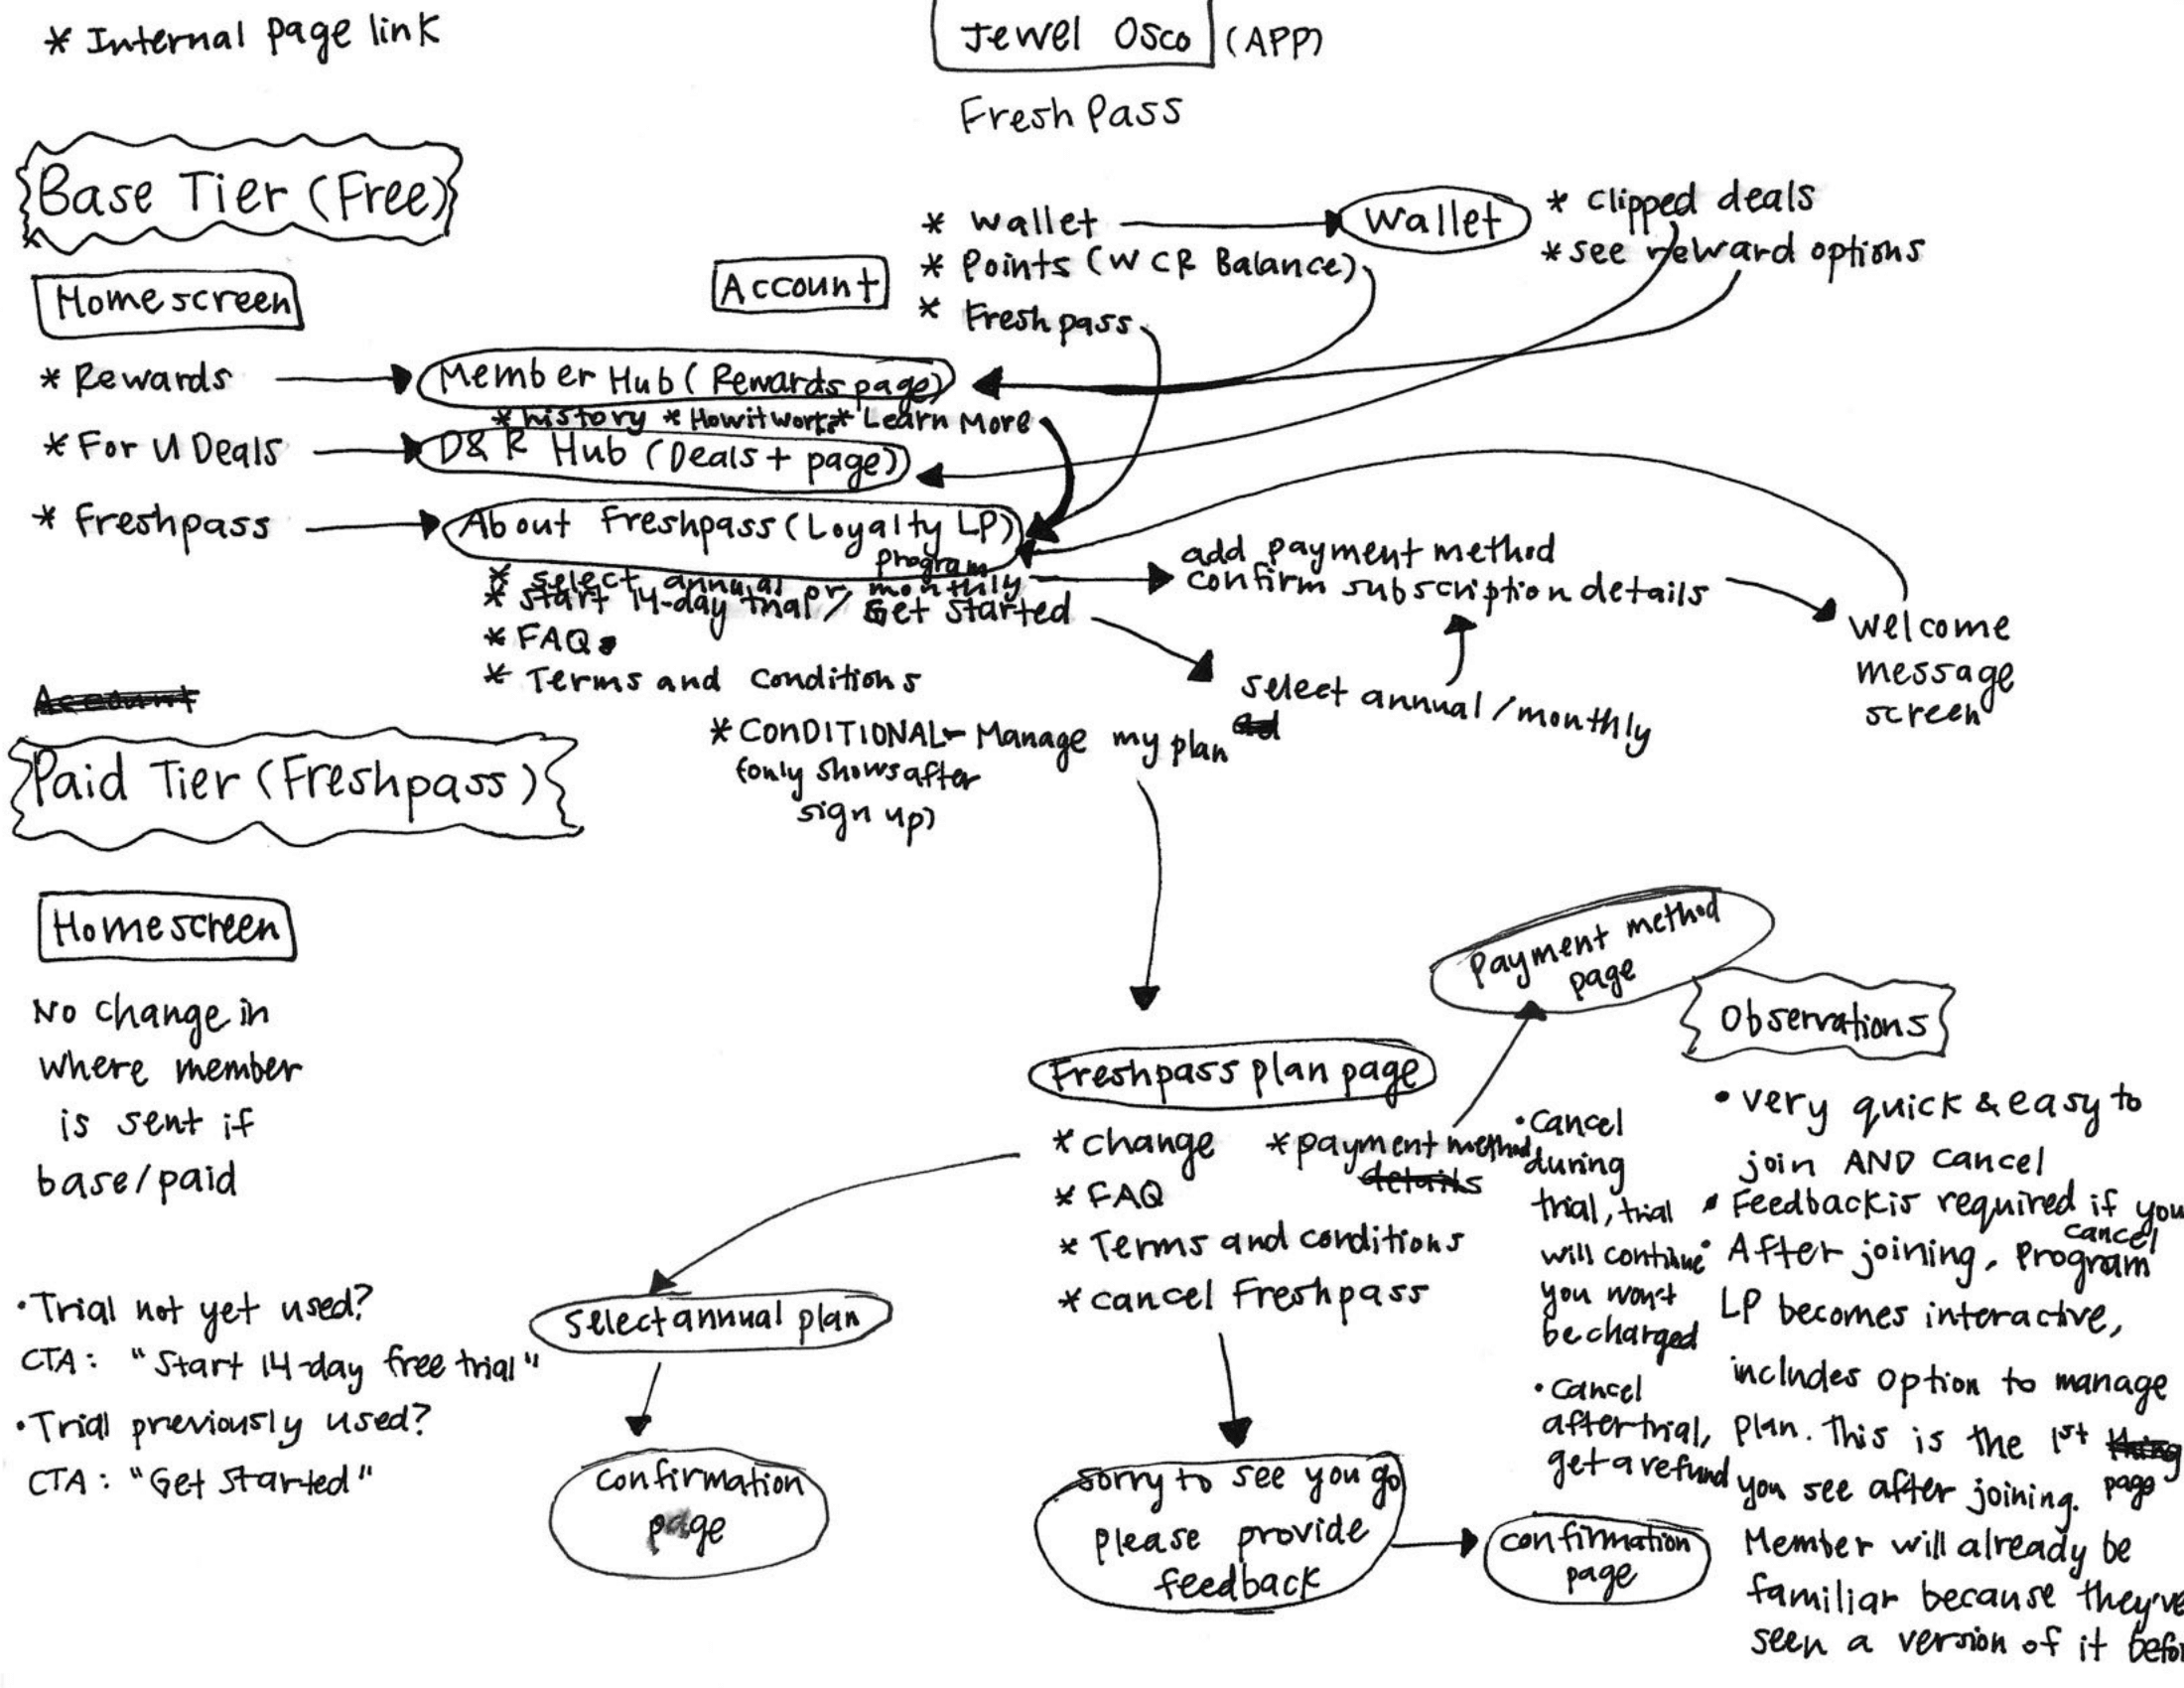 * Internal page link
Jewel Osco (APP)
Fresh Pass
Base Tier (Free)
Homescreen
* Rewards
* For U Deals
* Freshpass
Account
* Wallet
* Points (WCR Balance)
* Freshpass
Wallet
* Clipped deals
* see reward options
Member Hub (Rewards page)
* history * How it works * Learn More
D&R Hub (Deals + page)
About Freshpass (Loyalty LP)
program
* select annual or monthly
* start 14-day trial / Get started
* FAQ
* Terms and Conditions
* CONDITIONAL - Manage my plan
(only shows after
sign up)
add payment method
confirm subscription details
select annual/monthly
welcome
message
screen
Account
Paid Tier (Freshpass)
Homescreen
No change in
where member
is sent if
base/paid
• Trial not yet used?
CTA: "Start 14-day free trial"
• Trial previously used?
CTA: "Get Started"
Freshpass plan page
* Change
* FAQ
* Terms and conditions
* cancel Freshpass
* payment method
details
Payment method
page
select annual plan
confirmation
page
Sorry to see you go
please provide
feedback
confirmation
page
• Cancel
during
trial, trial
will continue
you won't
be charged
• Cancel
after trial,
get a refund
Observations
• very quick & easy to
join AND cancel
• Feedback is required if you
cancel
• After joining, Program
LP becomes interactive,
includes option to manage
plan. This is the 1st thing
page
you see after joining.
Member will already be
familiar because they've
seen a version of it